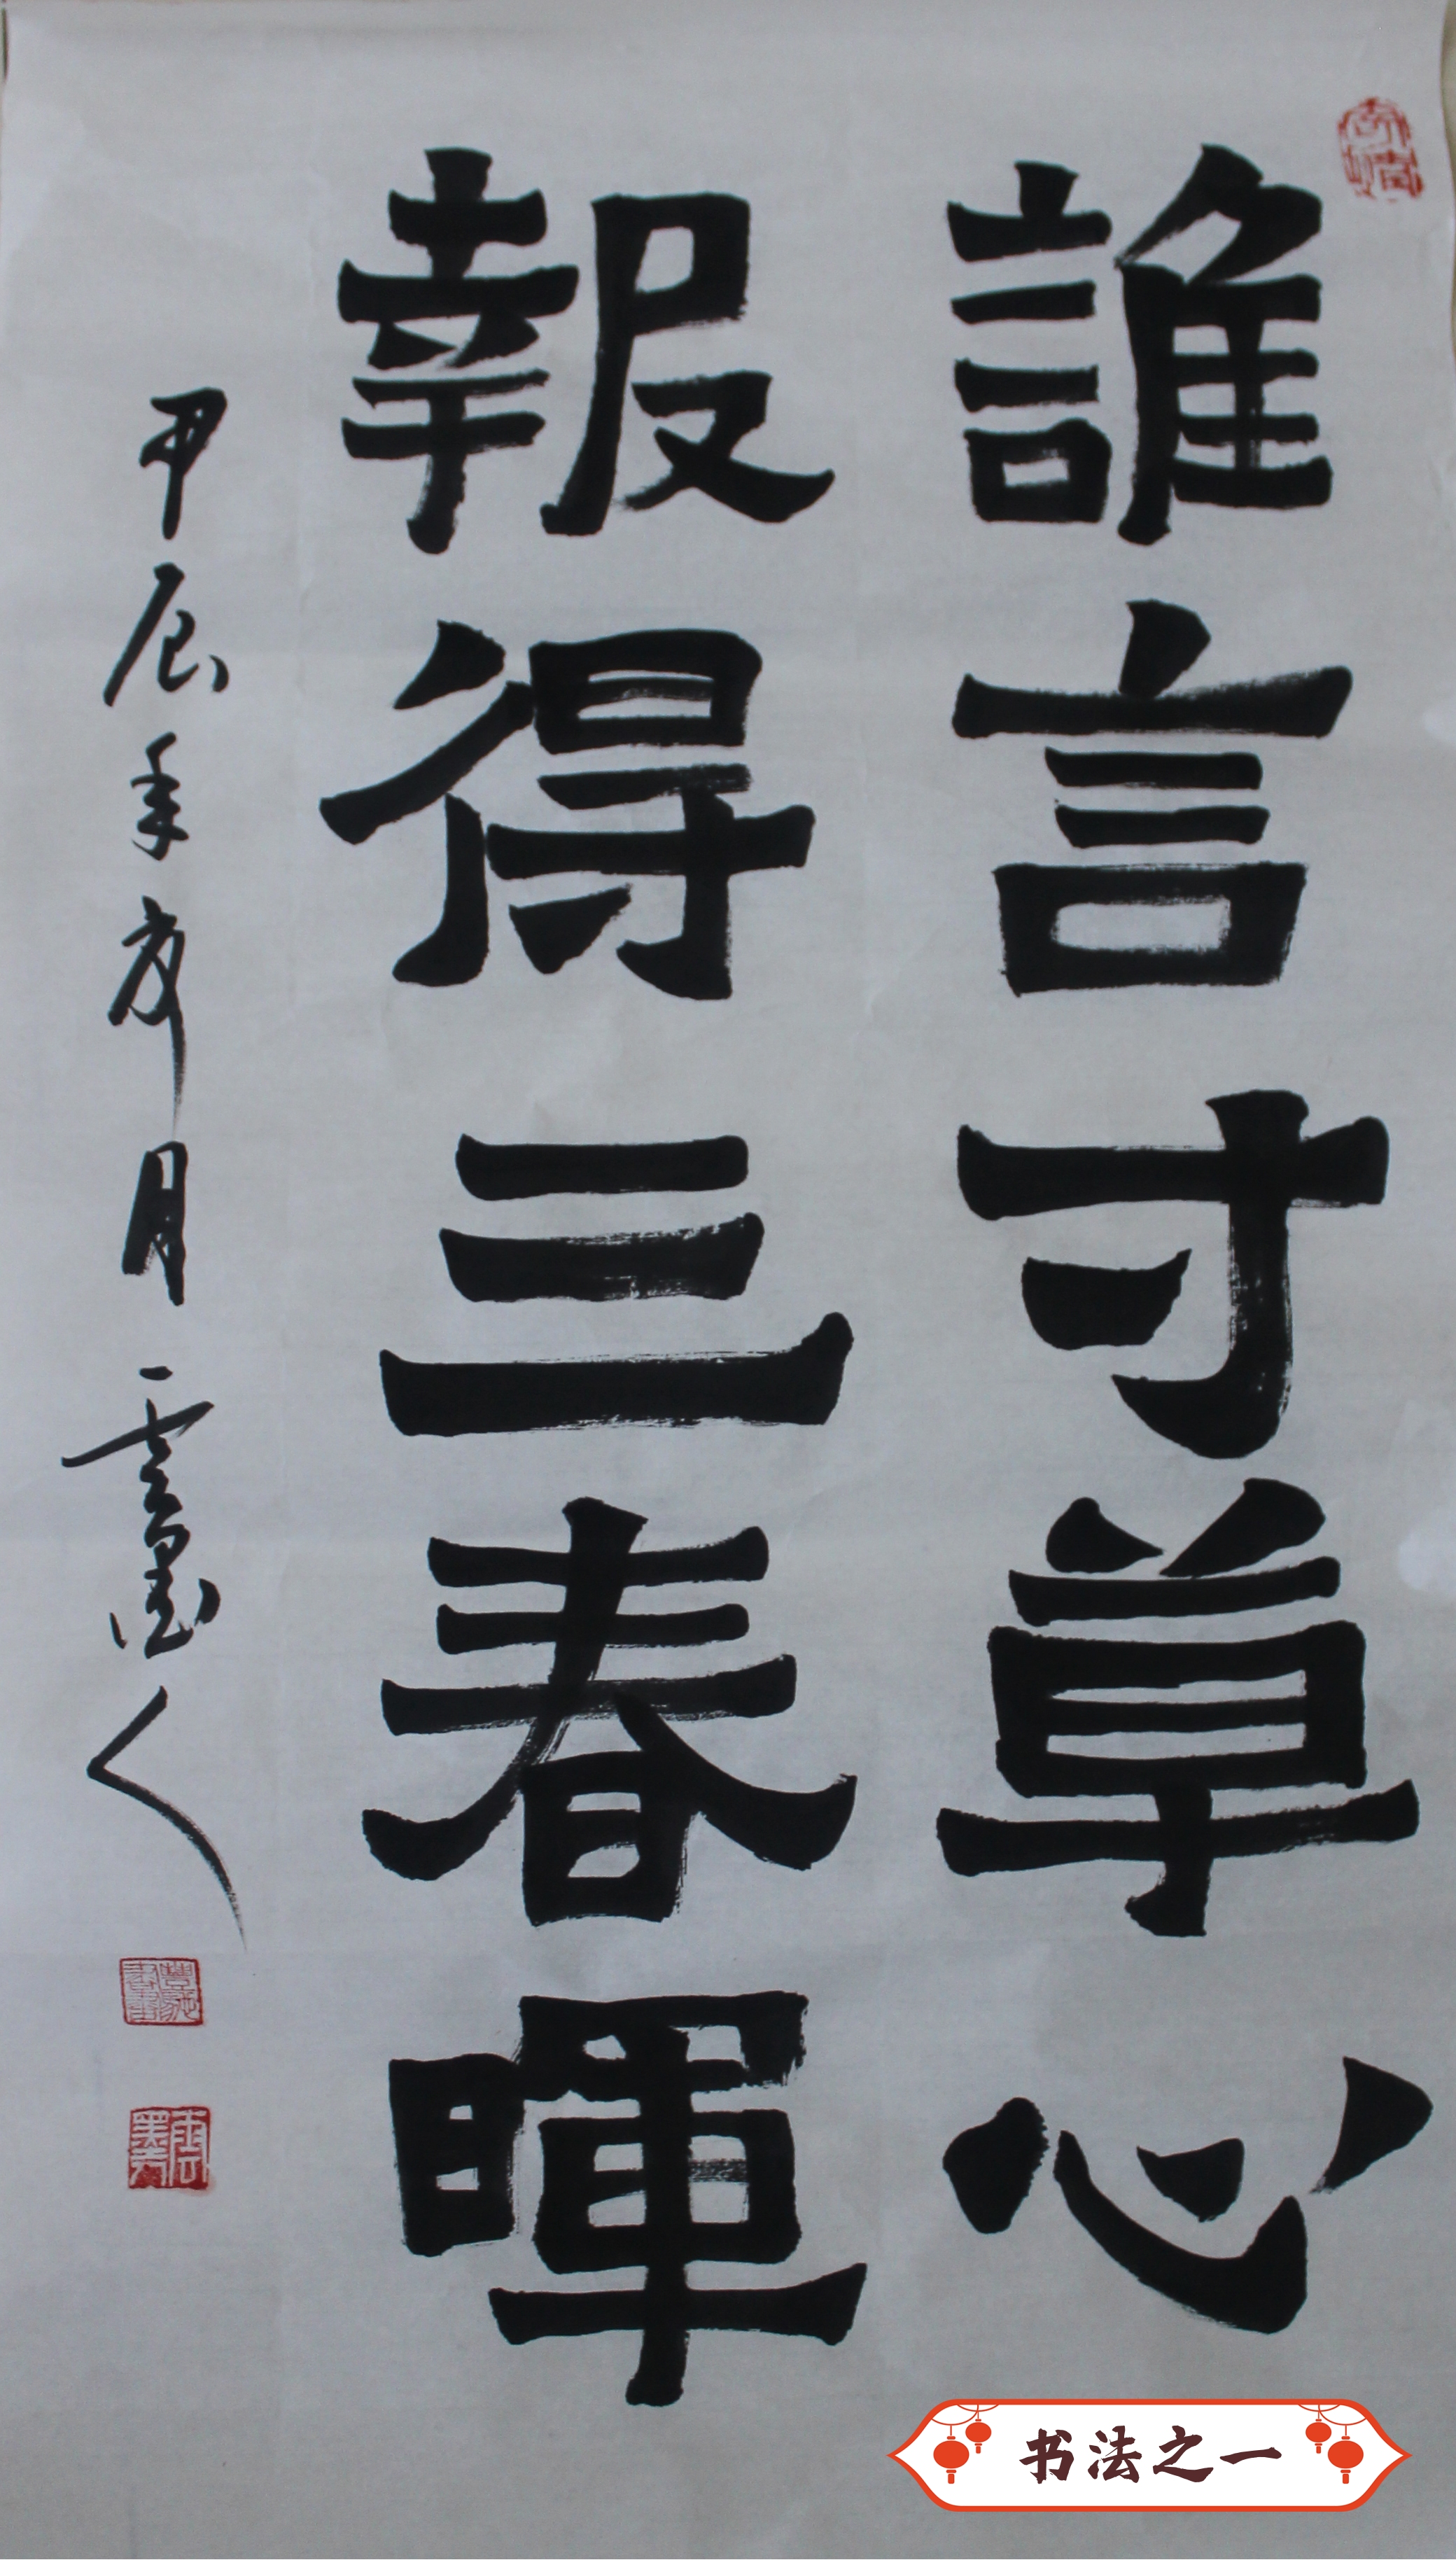 誰言寸草心
報得三春暉
甲辰年月雲墨人
书法之一